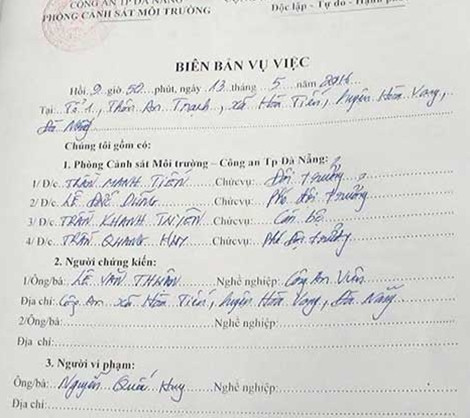 CÔNG AN TP ĐÀ NẴNG
PHÒNG CẢNH SÁT MÔI TRƯỜNG
Độc lập - Tự do - Hạnh phúc
BIÊN BẢN VỤ VIỆC
Hồi 9 giờ 50 phút, ngày 13 tháng 5 năm 2016
Tại Tổ 1, Thôn An Trạch, xã Hòa Tiến, huyện Hòa Vang,
Đà Nẵng
Chúng tôi gồm có:
1. Phòng Cảnh sát Môi trường – Công an Tp Đà Nẵng:
1/ Đ/c TRẦN MẠNH TIẾN Chức vụ: Đội trưởng
2/ Đ/c LÊ ĐỨC DŨNG Chức vụ: Phó đội trưởng
3/ Đ/c TRẦN KHANH Chức vụ: Cán bộ
4/ Đ/c TRẦN QUANG HUY Chức vụ: Phó đội trưởng
2. Người chứng kiến:
1/Ông/bà: LÊ VĂN Nghề nghiệp: Công An Viên
Địa chỉ: Công An xã Hòa Tiến, huyện Hòa Vang, Đà Nẵng
2/Ông/bà: Nghề nghiệp:
Địa chỉ:
3. Người vi phạm:
Ông/bà: Nguyễn Quốc Huy Nghề nghiệp:
Địa chỉ: